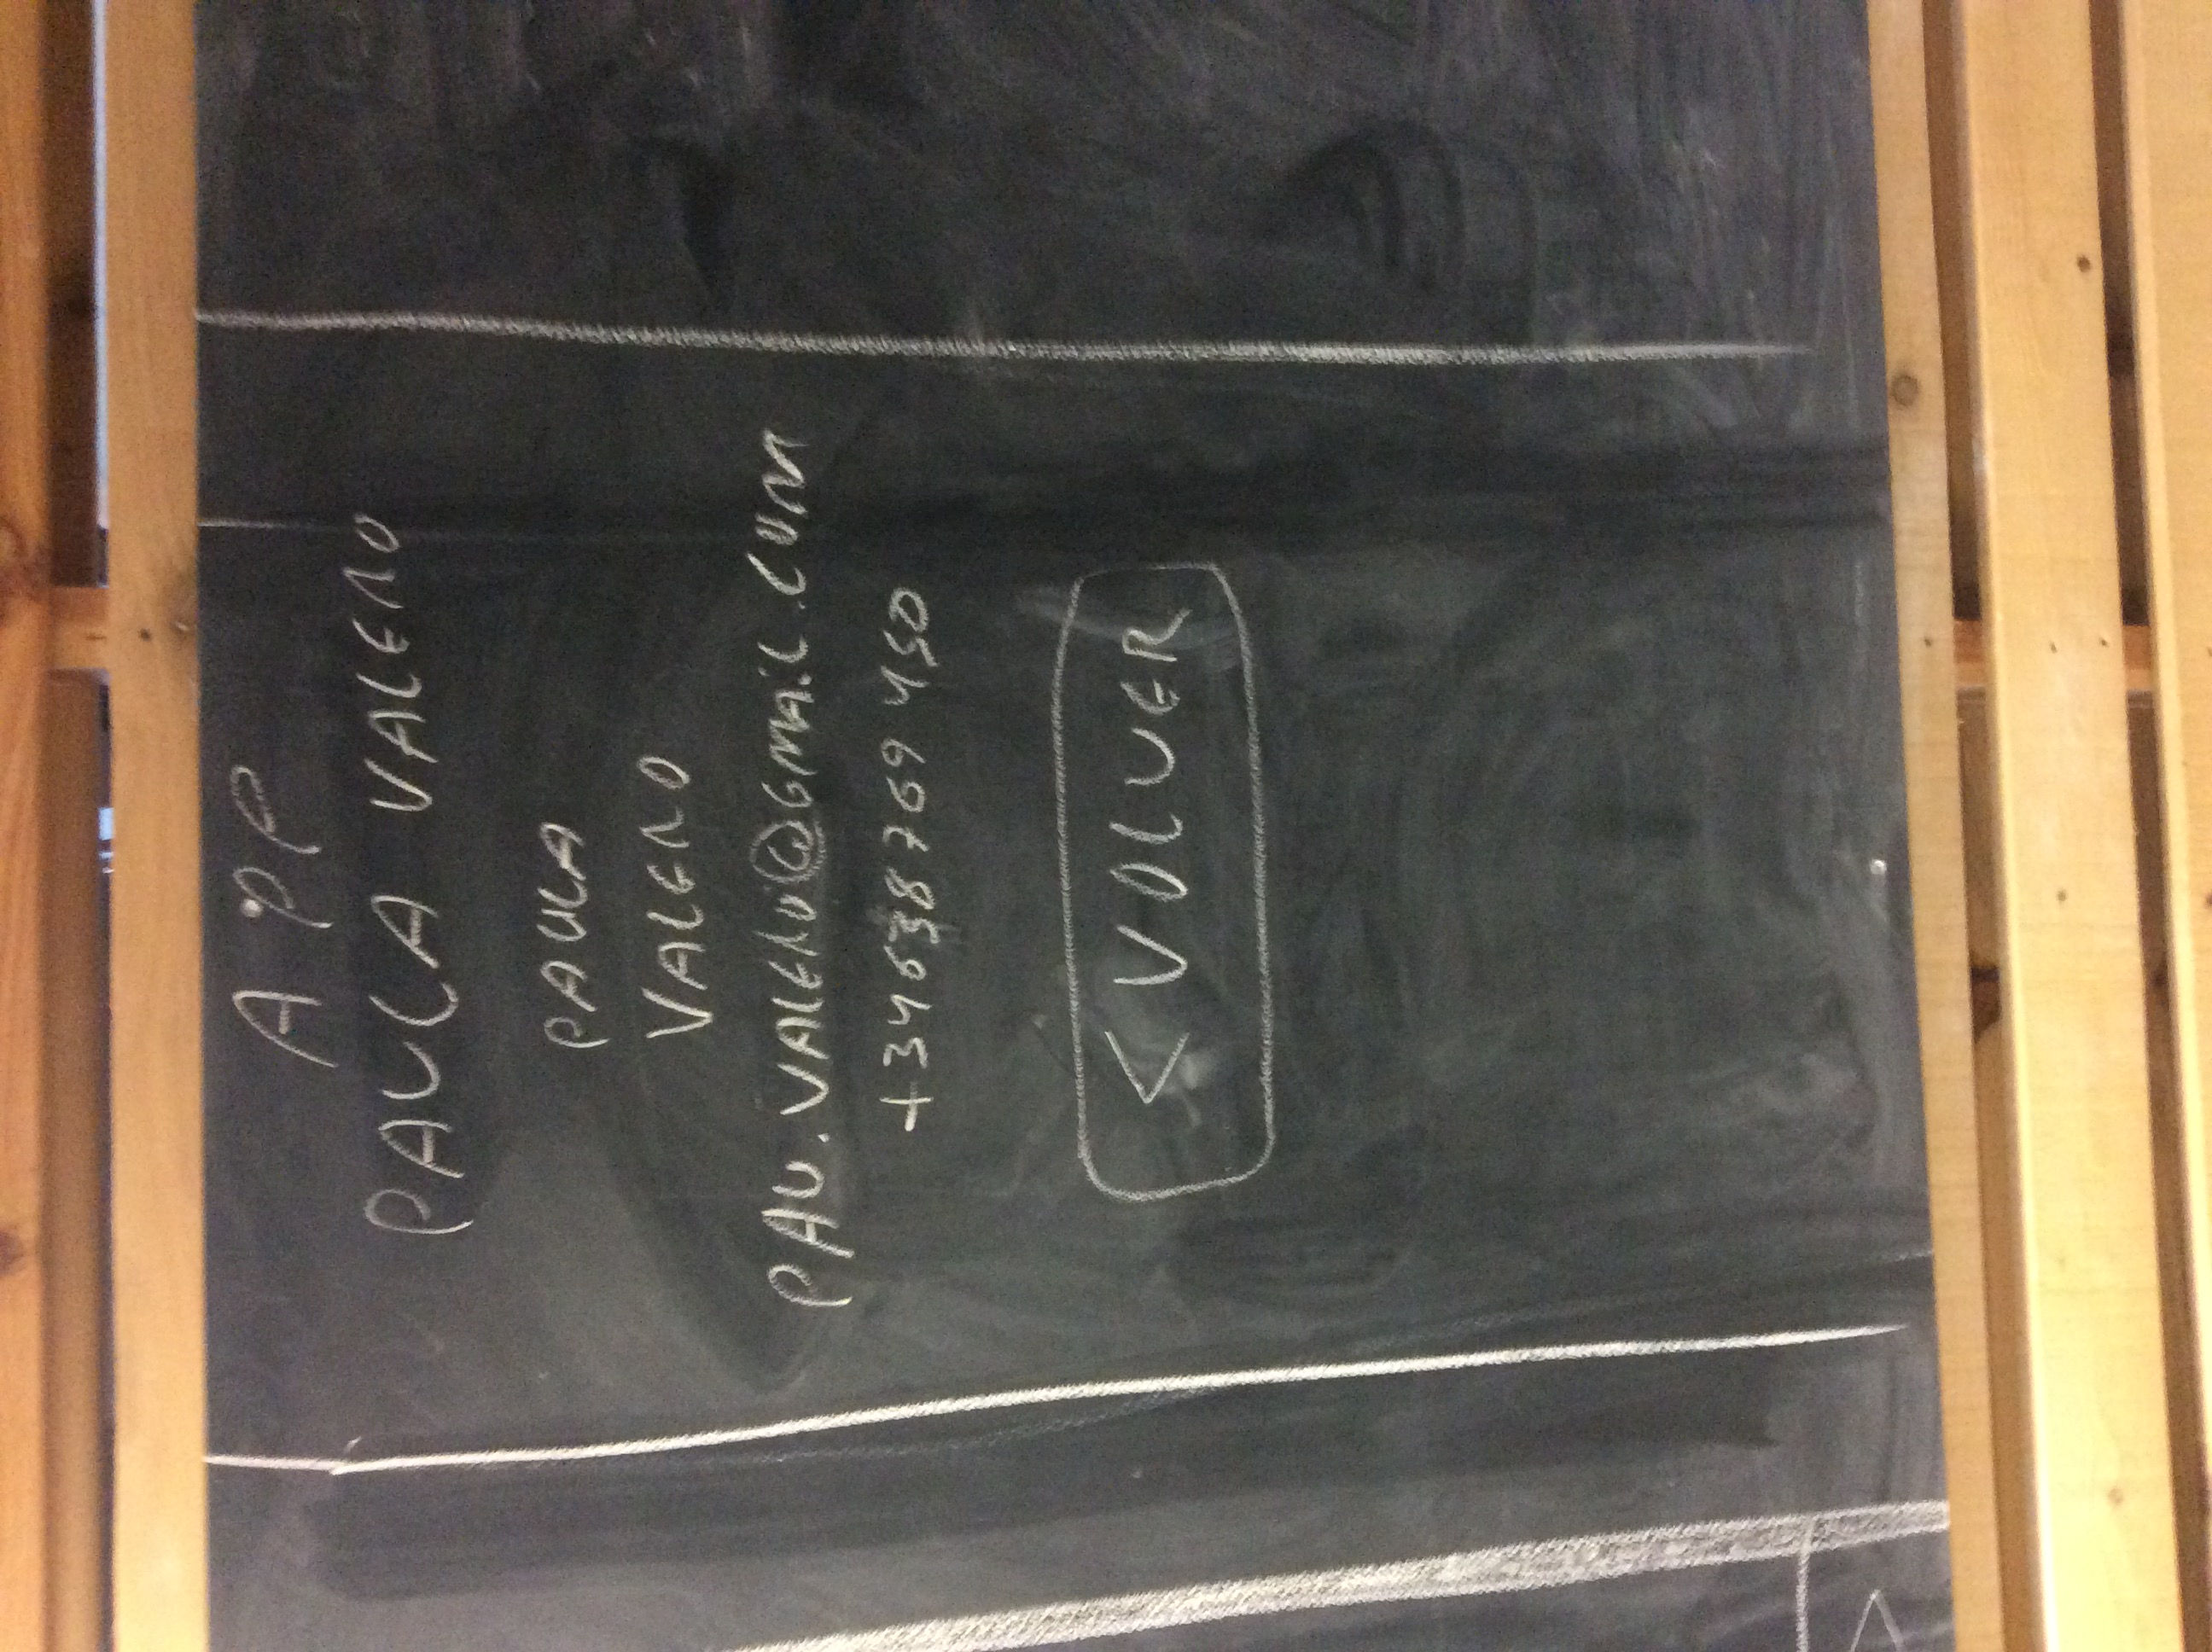 APP
PAULA VALERO
PAULA
VALERO
PAU.VALERO@GMAiL.COM
+34638769450
< VOLVER